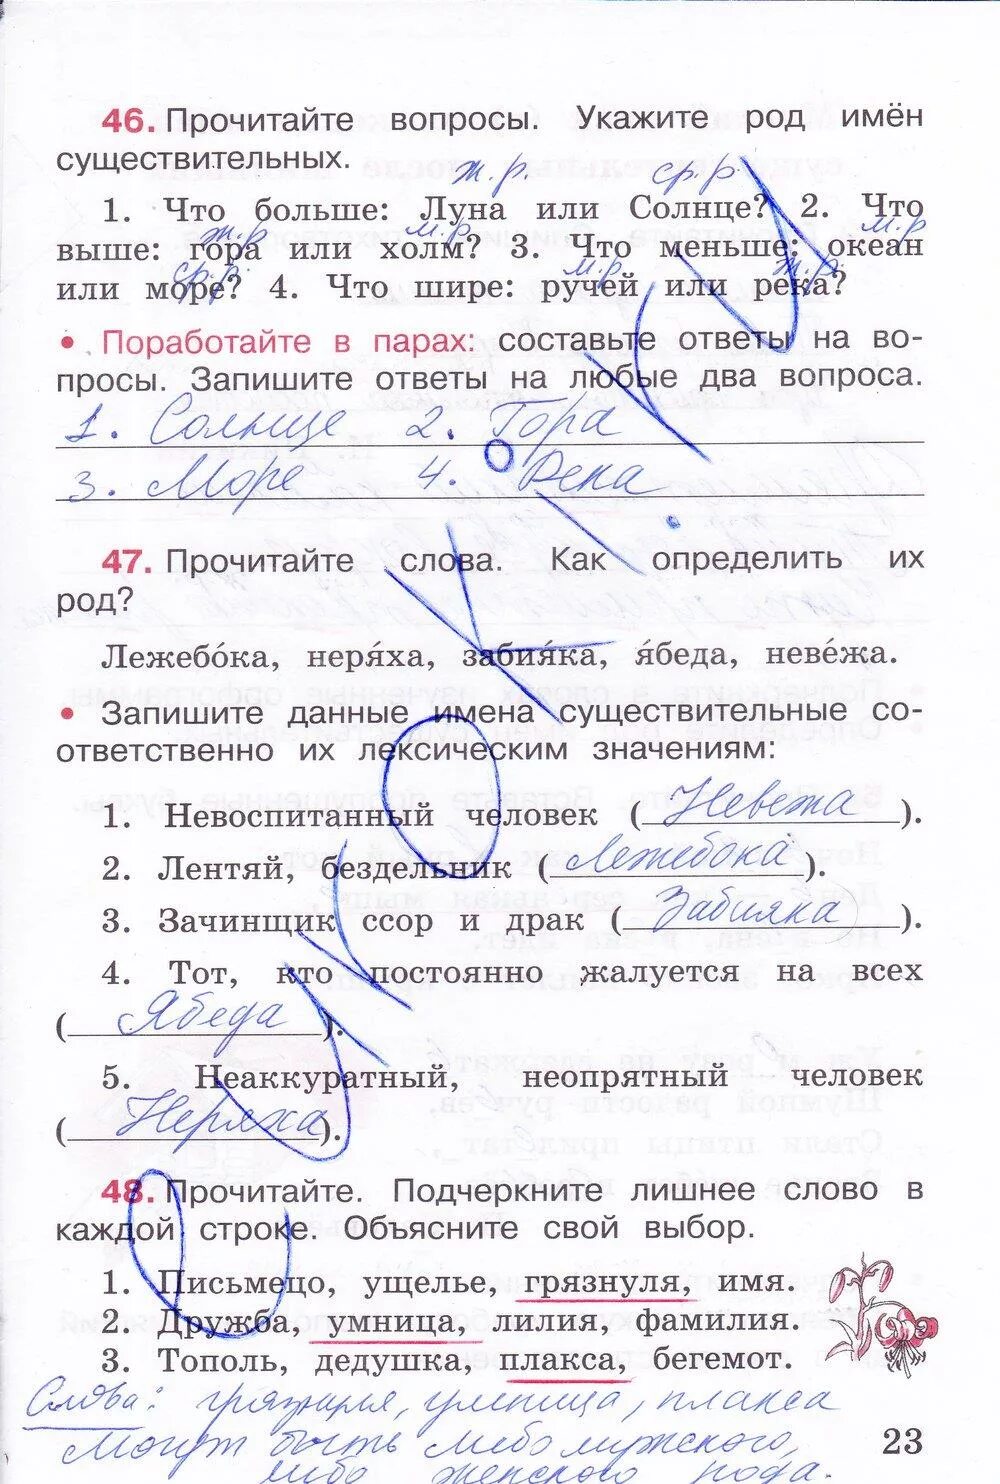 46. Прочитайте вопросы. Укажите род имён
существительных.
ж.р. ср.р.
1. Что больше: Луна или Солнце? 2. Что
ж.р. м.р. м.р
выше: гора или холм? 3. Что меньше: океан
ср.р. м.р. ж.р.
или море? 4. Что шире: ручей или река?
• Поработайте в парах: составьте ответы на во-
просы. Запишите ответы на любые два вопроса.
1. Солнце 2. Гора
3. Море 4. Река
47. Прочитайте слова. Как определить их
род?
Лежебо́ка, неря́ха, забия́ка, я́беда, неве́жа.
• Запишите данные имена существительные со-
ответственно их лексическим значениям:
1. Невоспитанный человек (Невежа).
2. Лентяй, бездельник (Лежебока).
3. Зачинщик ссор и драк (Забияка).
4. Тот, кто постоянно жалуется на всех
(Ябеда).
5. Неаккуратный, неопрятный человек
(Неряха).
48. Прочитайте. Подчеркните лишнее слово в
каждой строке. Объясните свой выбор.
1. Письмецо, ущелье, грязнуля, имя.
2. Дружба, умница, лилия, фамилия.
3. Тополь, дедушка, плакса, бегемот.
Слова: грязнуля, умница, плакса
могут быть либо мужского,
либо женского рода.
23